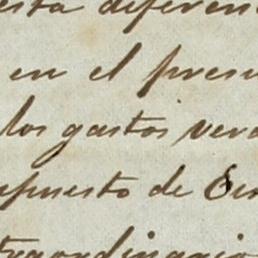 esta diferen
en el presu
los gastos verd
upuesto de
traordinario